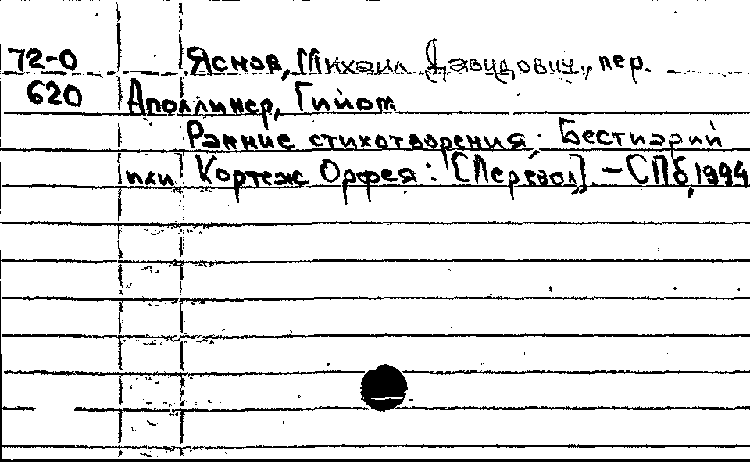 72-0 Яснов, Михаил Давидович, пер.
620 Аполлинер, Гийом
Ранние стихотворения; Бестиарий
или Кортеж Орфея: [Перевод]. - СПб, 1994